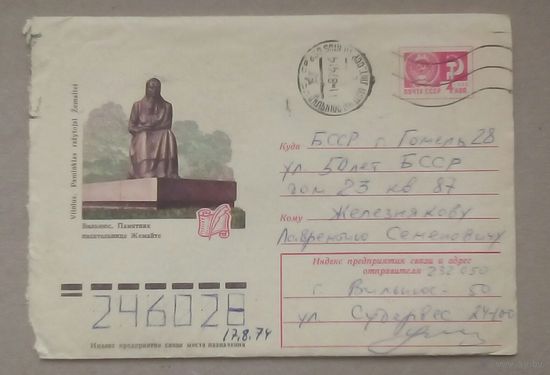 Vilnius. Paminklas rašytojai Žemaitei
Вильнюс. Памятник
писательнице Жемайте
ПОЧТА СССР
4 КОП
Куда БССР г. Гомель 28
ул 50 лет БССР
дом 23 кв 87
Кому Железнякову
Лаврентию Семеновичу
Индекс предприятия связи и адрес
отправителя 232050
г. Вильнюс-50
ул
246028
17.8.74
Индекс предприятия связи места назначения